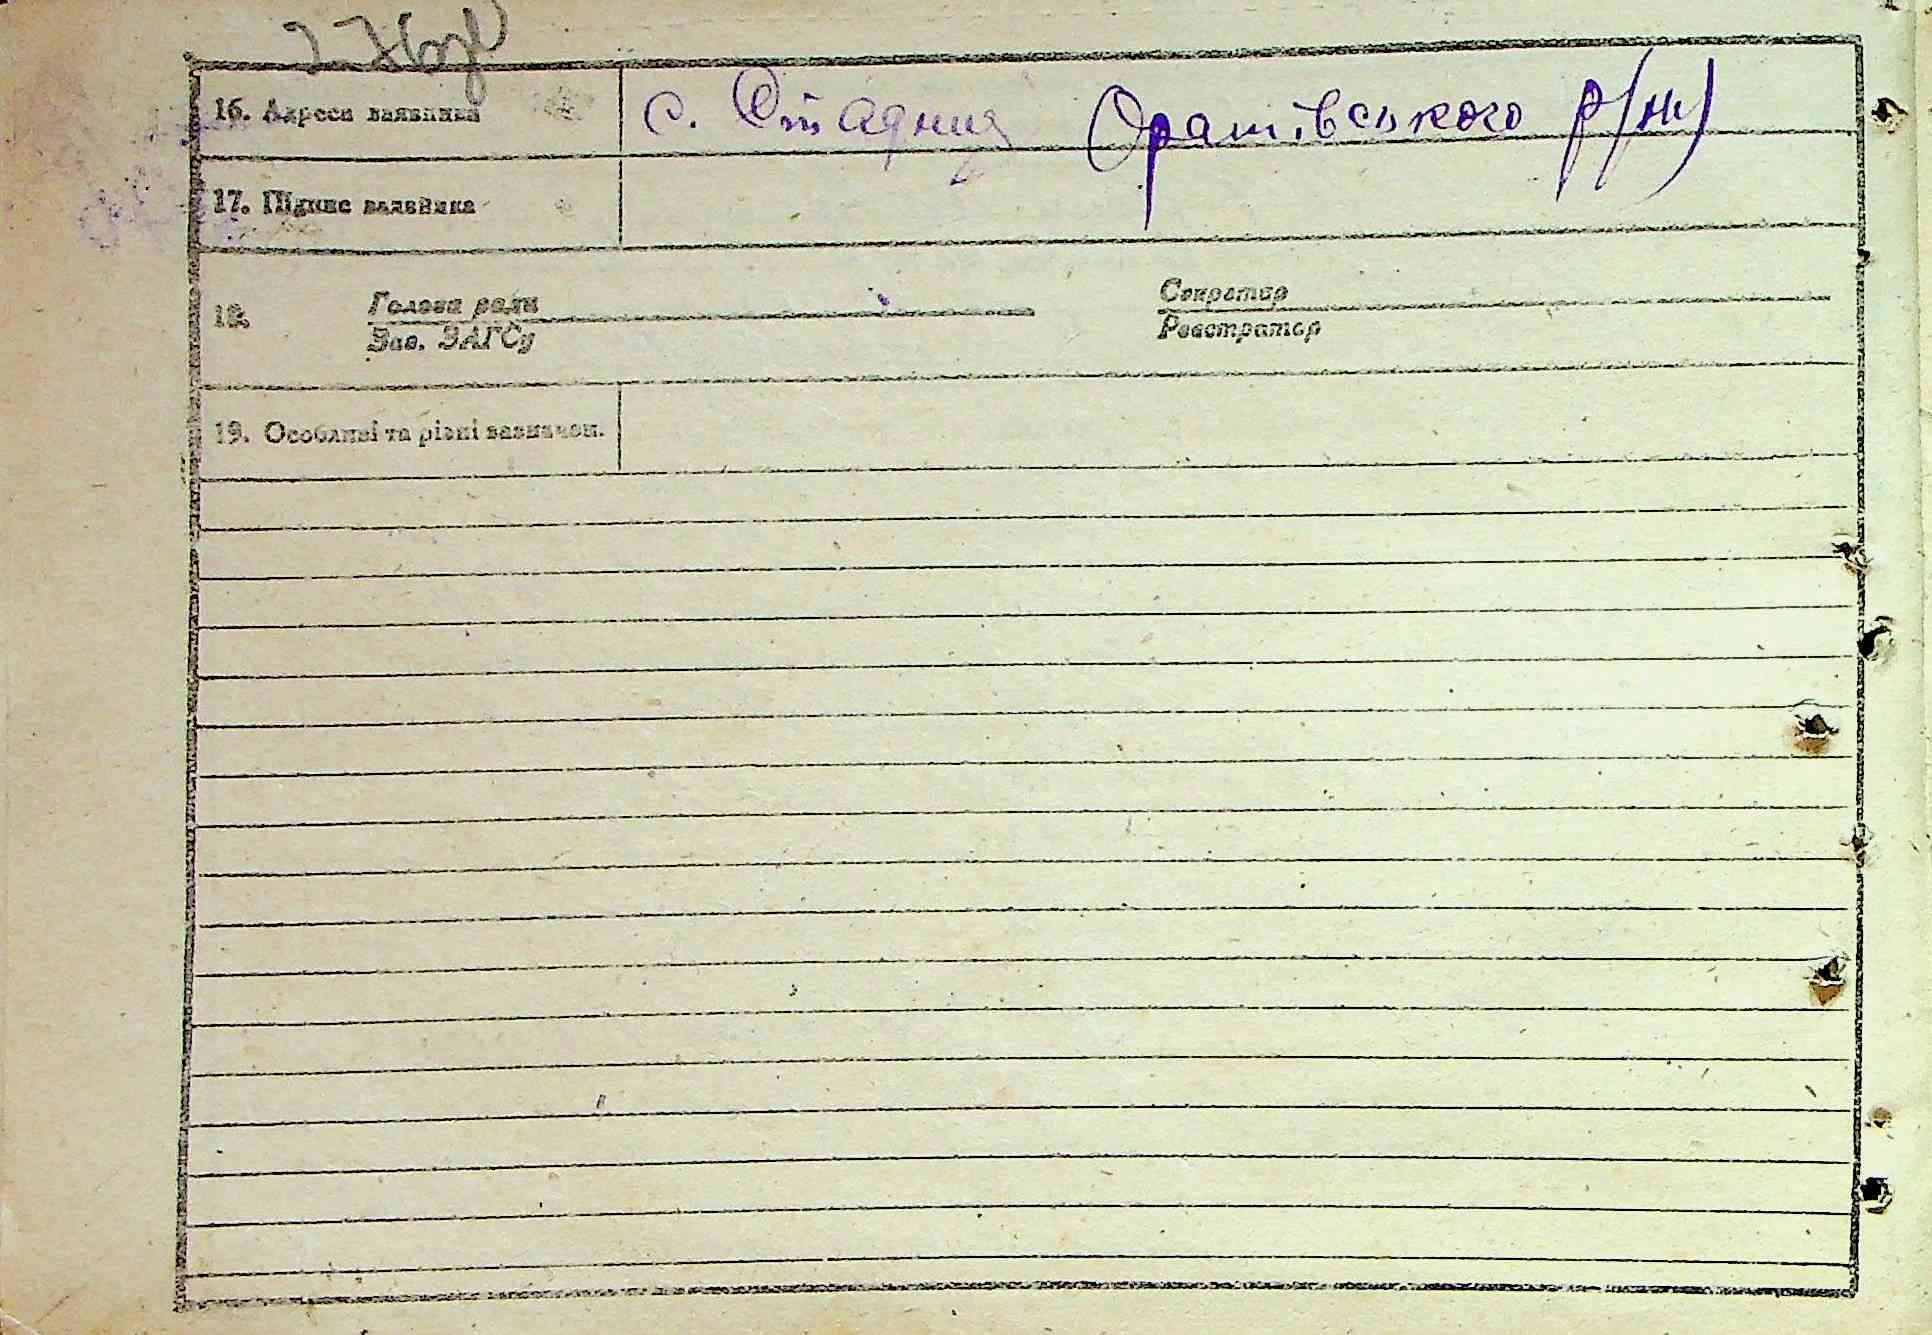 16. Адреса заявника
с. Стадниця Оратівського р/ну
17. Підпис заявника
18.
Голова ради
Зав. ЗАГСу
Секретар
Реєстратор
19. Особливі та різні зазначен.